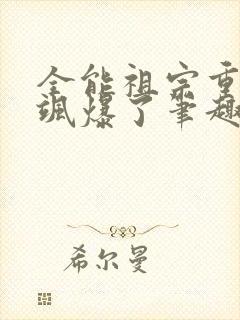 全能祖宗重
飒爆了笔趣
希尔曼